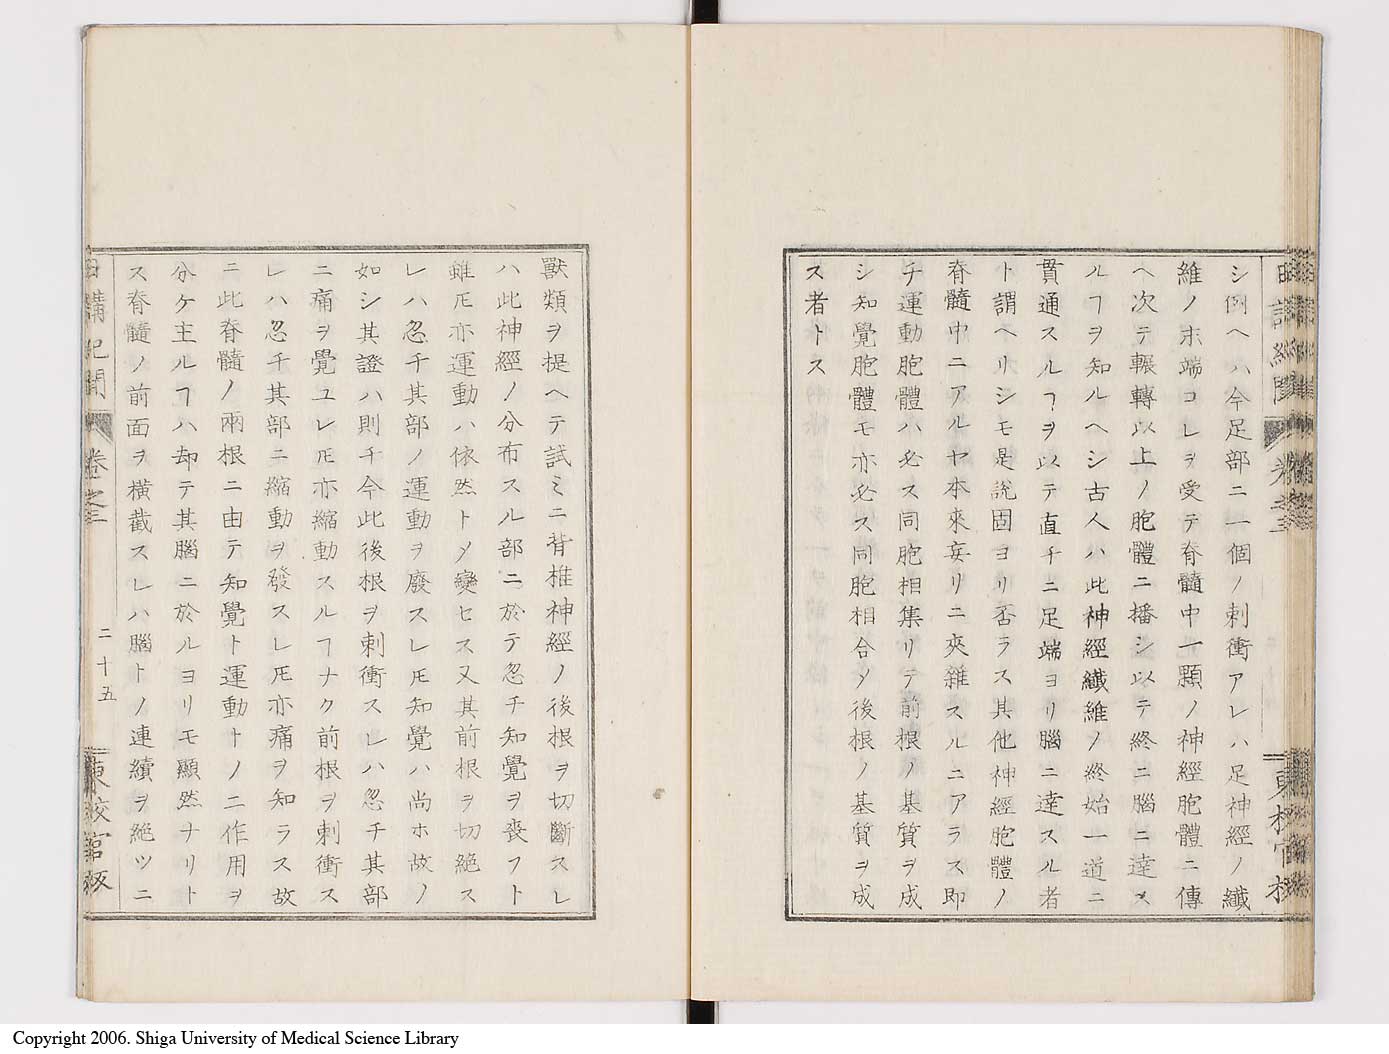 シ例ヘハ今足部ニ一個ノ刺衝アレハ足神經ノ纎
維ノ末端コレヲ受テ脊髓中一顆ノ神經胞體ニ傳
ヘ次テ輾轉以上ノ胞體ニ播シ以テ終ニ腦ニ達ス
ルヿヲ知ルヘシ古人ハ此神經纎維ノ終始一道ニ
貫通スルヿヲ以テ直チニ足端ヨリ腦ニ達スル者
ト謂ヘリシモ是説固ヨリ否ラス其他神經胞體ノ
脊髓中ニアルヤ本來妄リニ夾雜スルニアラス即
チ運動胞體ハ必ス同胞相集リテ前根ノ基質ヲ成
シ知覺胞體モ亦必ス同胞相合メ後根ノ基質ヲ成
ス者トス
獸類ヲ提ヘテ試ミニ背椎神經ノ後根ヲ切斷スレ
ハ此神經ノ分布スル部ニ於テ忽チ知覺ヲ喪フト
雖𪜈亦運動ハ依然トメ變セス又其前根ヲ切絶ス
レハ忽チ其部ノ運動ヲ廢スレ𪜈知覺ハ尚ホ故ノ
如シ其證ハ則チ今此後根ヲ刺衝スレハ忽チ其部
ニ痛ヲ覺ユレ𪜈亦縮動スルヿナク前根ヲ刺衝ス
レハ忽チ其部ニ縮動ヲ發スレ𪜈亦痛ヲ知ラス故
ニ此脊髓ノ兩根ニ由テ知覺ト運動トノ二作用ヲ
分ケ主ルヿハ却テ其腦ニ於ルヨリモ顯然ナリト
ス脊髓ノ前面ヲ橫截スレハ腦トノ連續ヲ絶ツニ
日講紀聞 卷之三 二十五
Copyright 2006. Shiga University of Medical Science Library